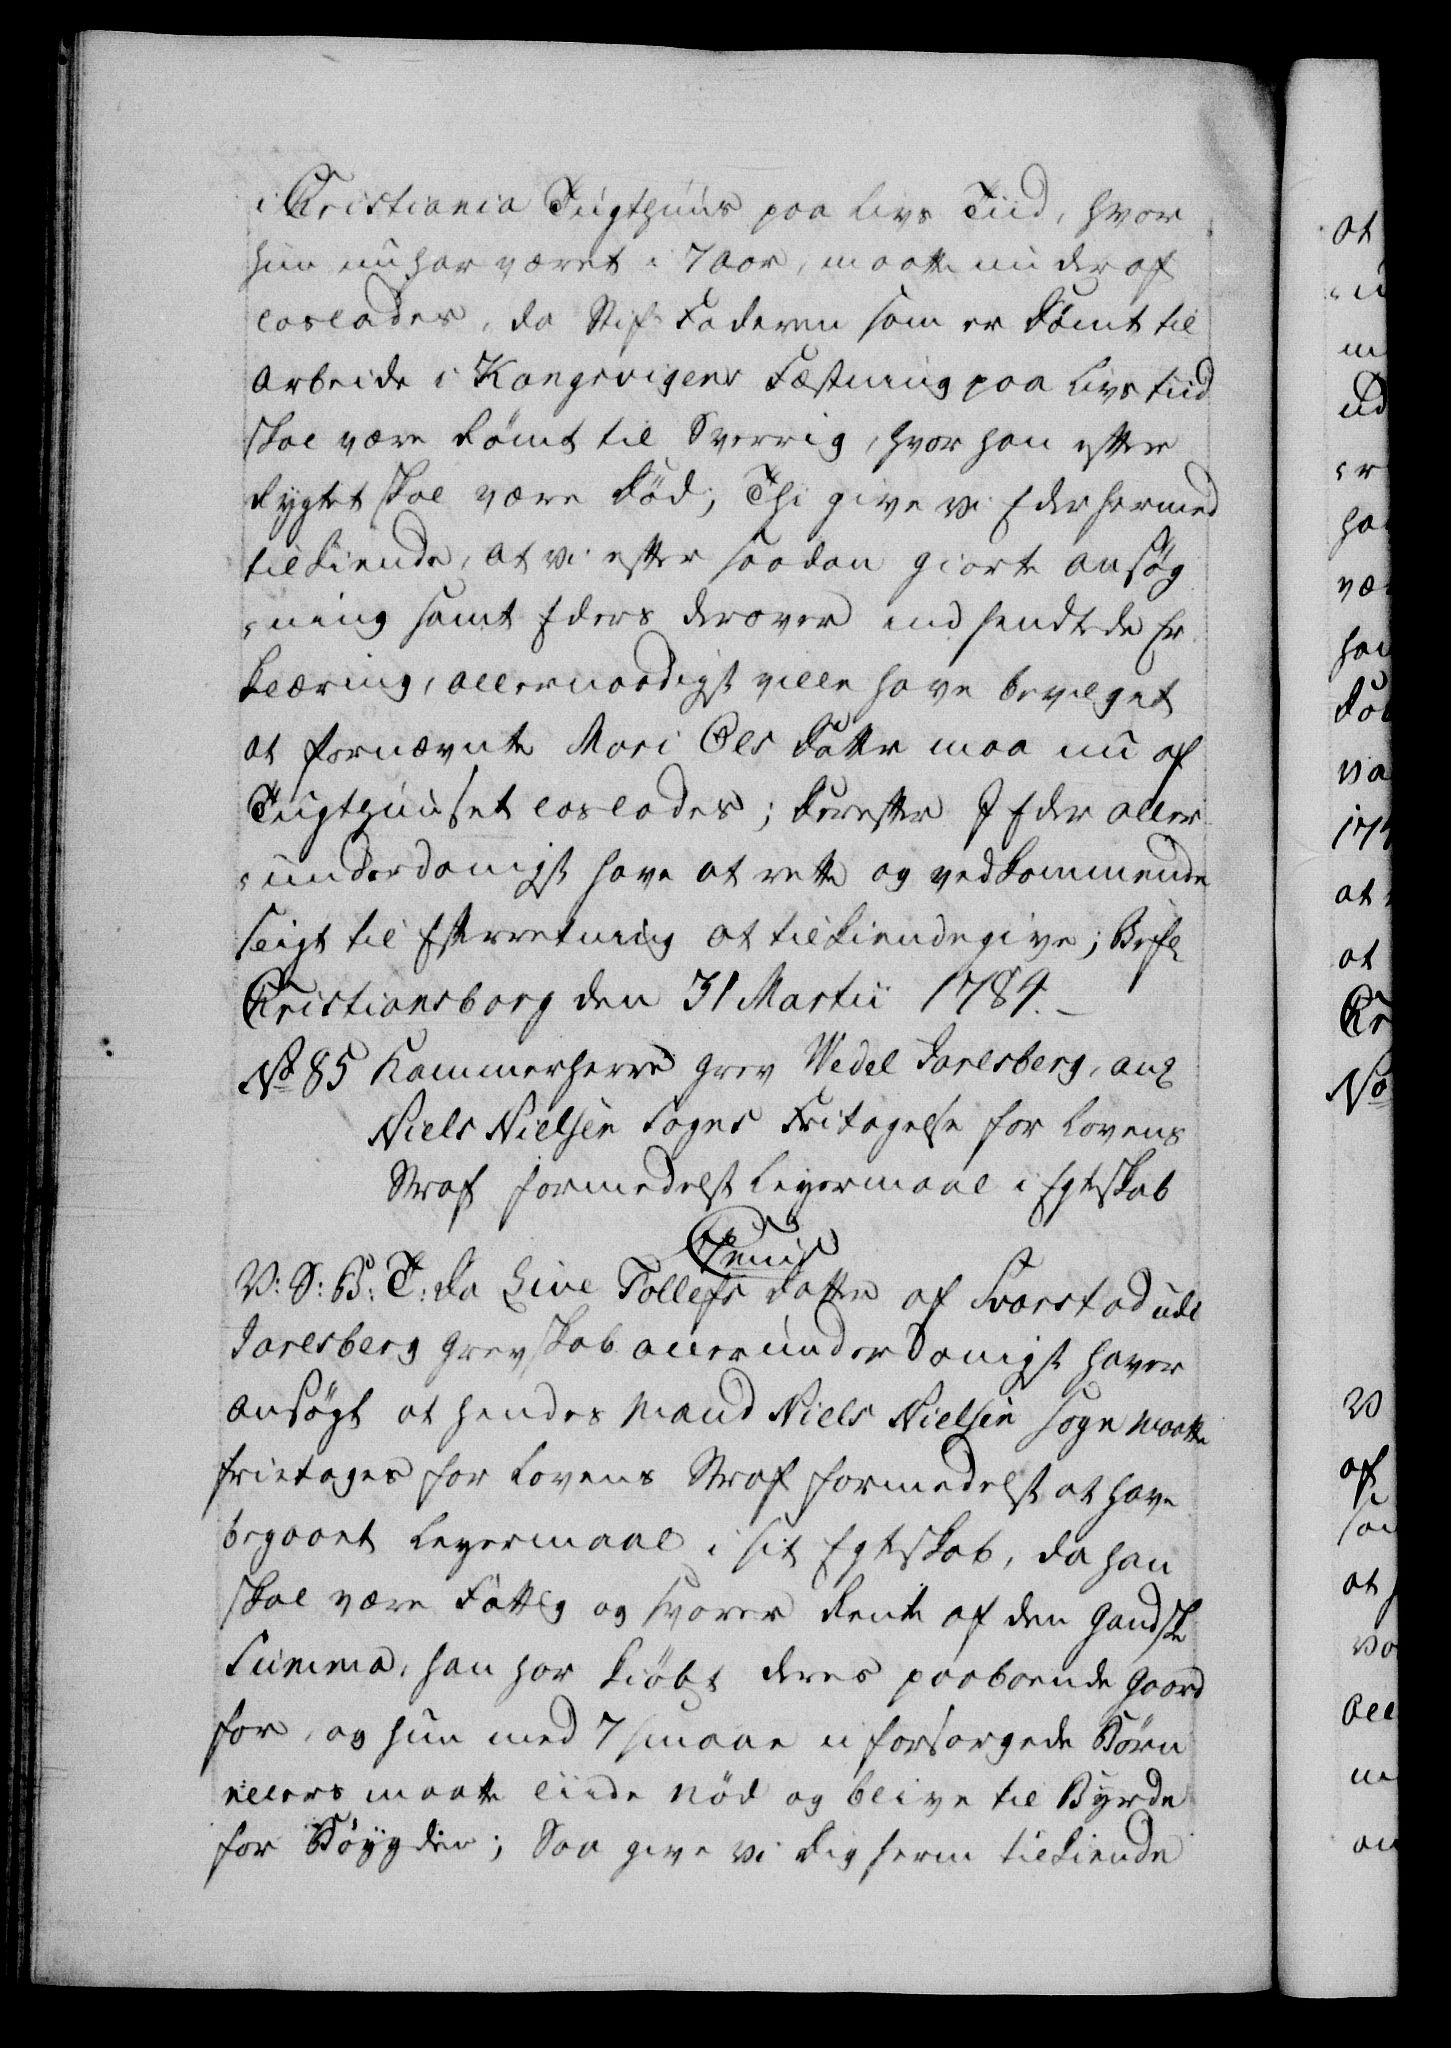 i Christiania Tugthuus paa Livs Tiid, hvor
hun nu har været i 7 Aar, maatte nu deraf
loslades, da Stif Faderen som er dömt til
Arbeide i Kongsvigens Fæstning paa Livs tiid
skal være römt til Sverrig, hvor han efter
Rygtet skal være död; Thi give vi Eder hermed
tilkiende, at vi efter saadan giorte ansøg
„ning samt Eders derover ind sendte de Er
klæring, allernaadigst ville have bevilget
at fornævnte Mari Ols datter maa nu af
Tugthuuset loslades; derefter I Eder aller
„underdanigst have at rette og ved kommende
sligt til Efterretning at tilkiendegive; Befl
Christiansborg den 31 Martii 1784.
No 85 Kammerherre Grev Wedel Jarlsberg, ang
Niels Nielsen Foges Fritagelse for Lovens
Straf formedelst Leyermaal i Egteskab
V: S: G: T: da Live Tollefs datter af Svarstad udi
Jarlsberg Grevskab allerunderdanigst haver
ansögt at hendes Mand Niels Nielsen Foge maatte
frietages for Lovens Straf formedelst at have
begaaet Leyermaal i sit Egteskab, da han
skal være Fattig og svarer Rente af den gandske
Summa, han har kiöbt deres paaboende Gaard
for, og hun med 7 smaae u forsorgede Börn
ellers maatte liide nöd og blive til Byrde
for Böygden; Saa give vi dig herm tilkiende
at
ud
No